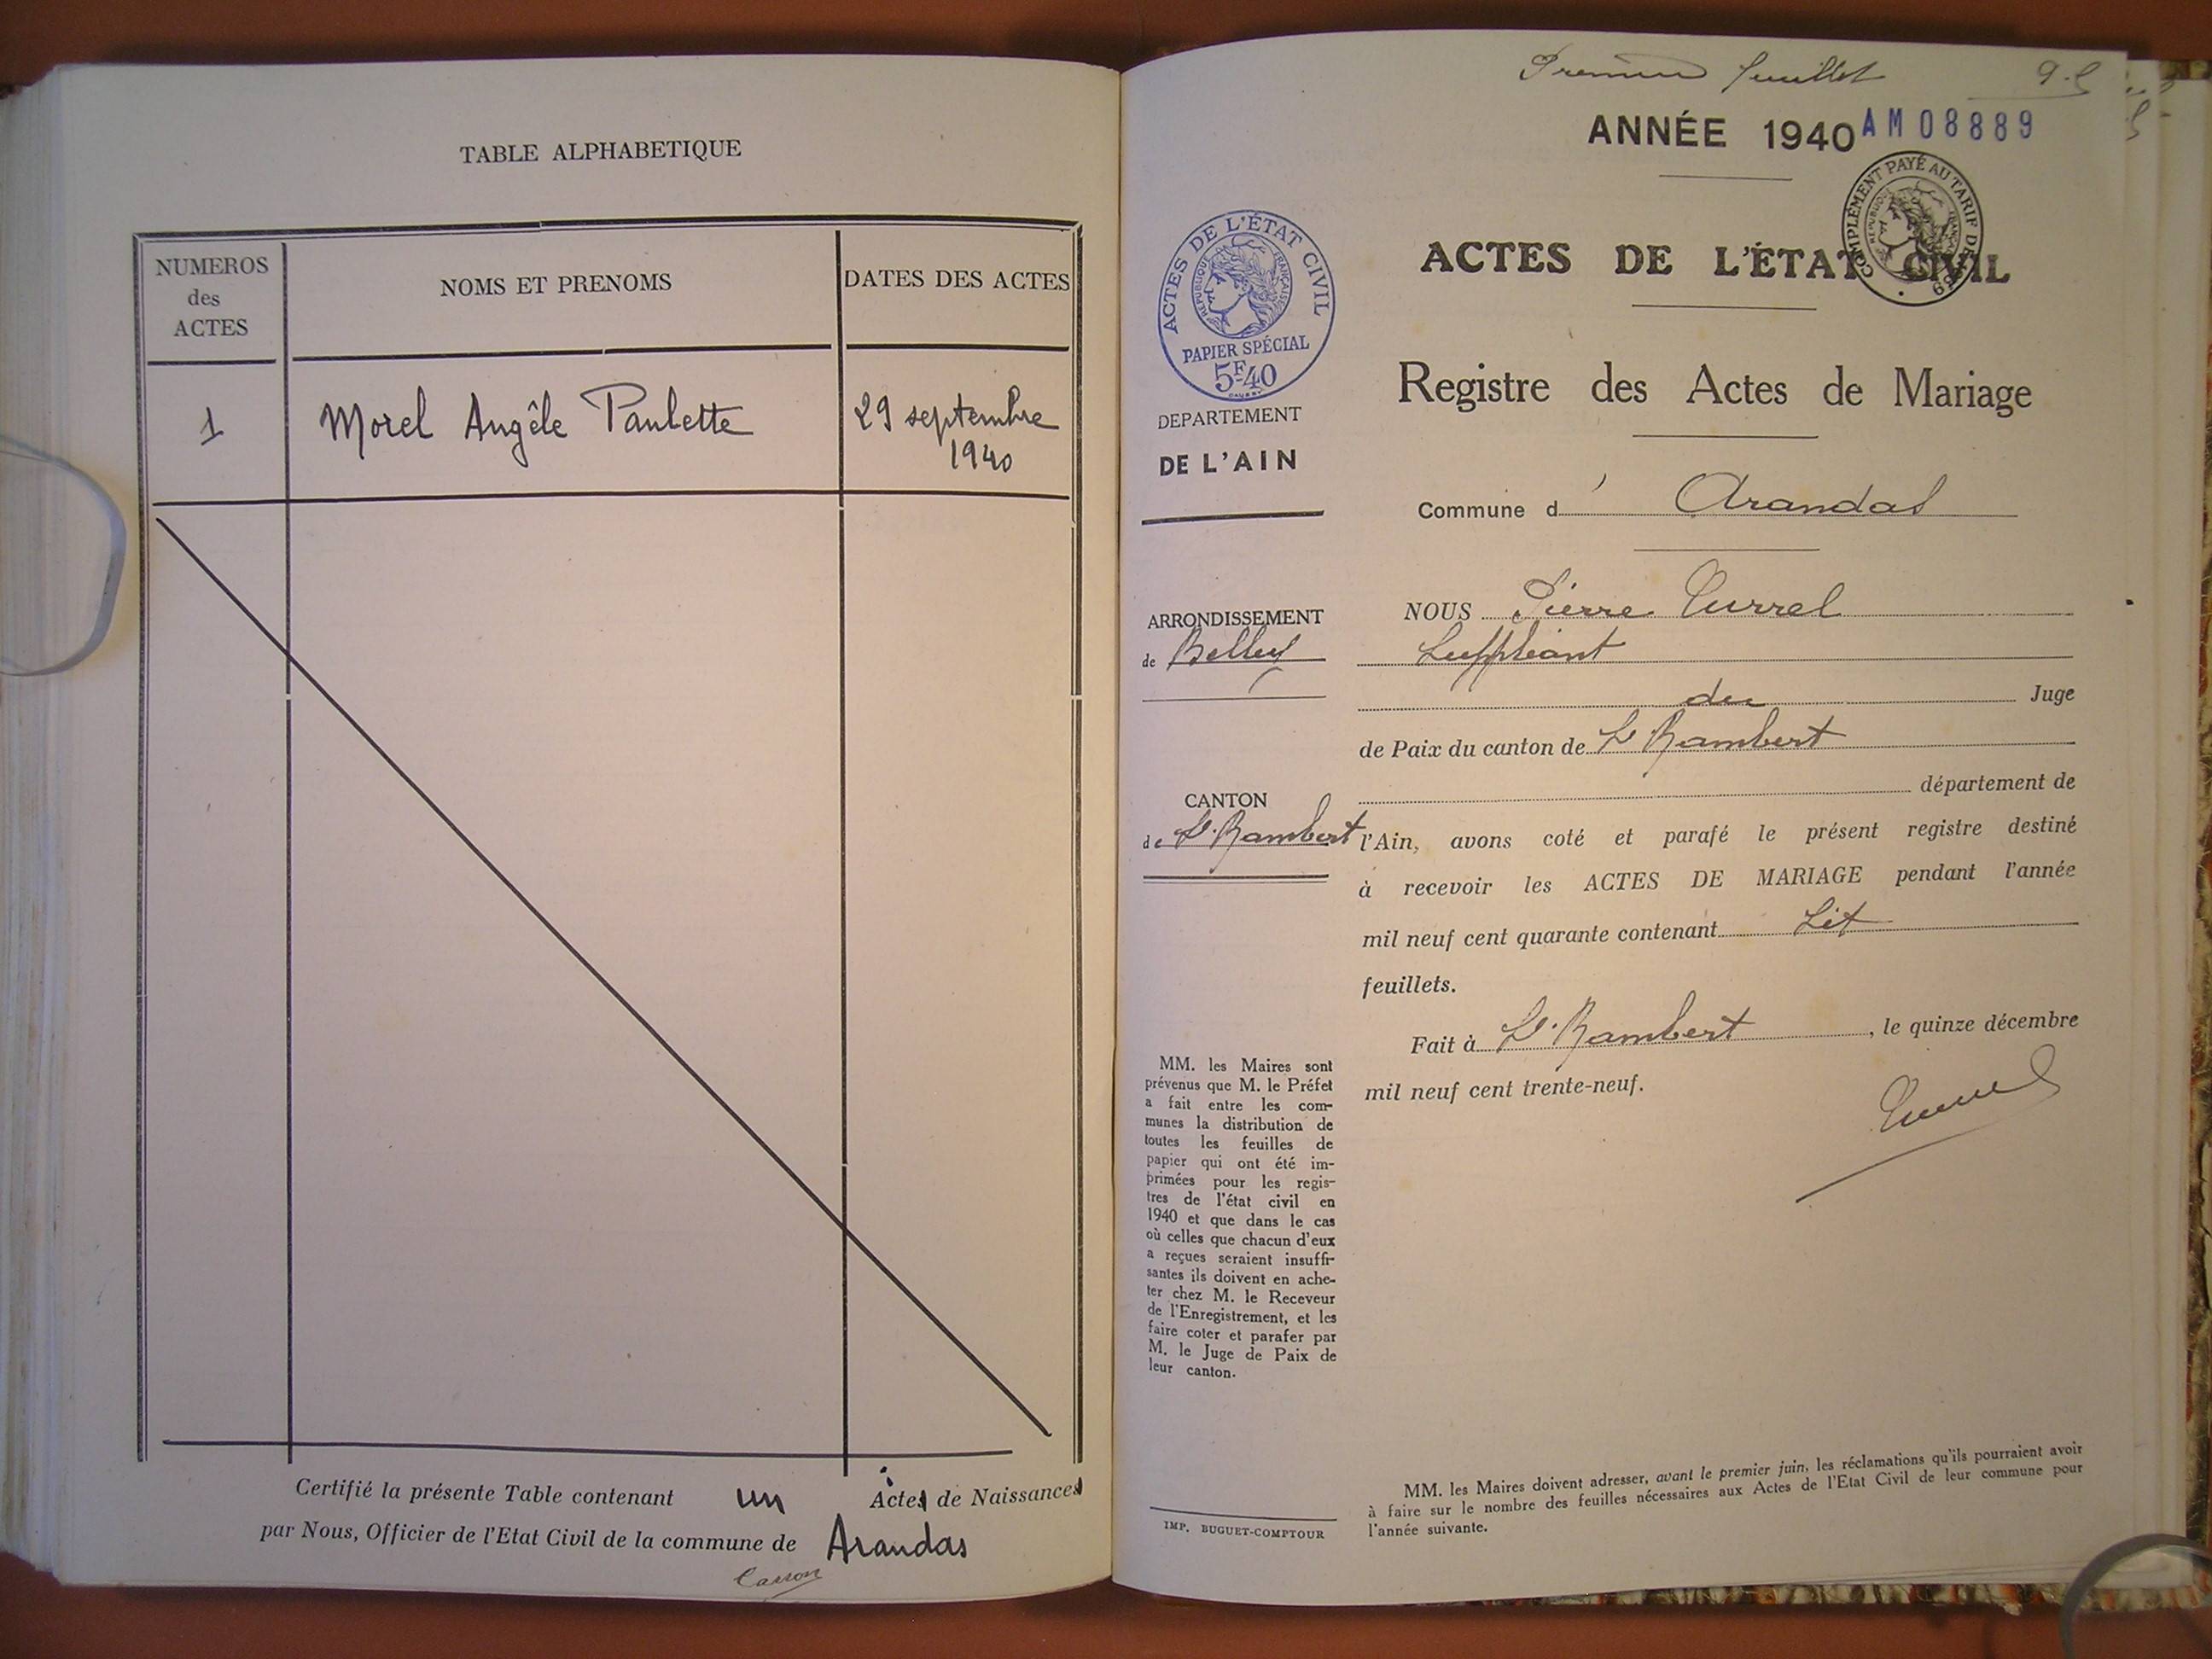 TABLE ALPHABETIQUE
NUMEROS
des
ACTES
NOMS ET PRENOMS
DATES DES ACTES
1
Morel Angèle Paulette
29 septembre
1940
Certifié la présente Table contenant un Actes de Naissances
par Nous, Officier de l'Etat Civil de la commune de Arandas
Carron
Premier feuillet
ANNÉE 1940 AM08889
COMPLÉMENT PAYÉ AU TARIF DE 1939
ACTES DE L'ÉTAT CIVIL
RÉPUBLIQUE FRANÇAISE
PAPIER SPÉCIAL
5F40
DEPARTEMENT
DE L'AIN
ARRONDISSEMENT
de Belley
CANTON
de St Rambert
MM. les Maires sont
prévenus que M. le Préfet
a fait entre les com-
munes la distribution de
toutes les feuilles de
papier qui ont été im-
primées pour les regis-
tres de l'état civil en
1940 et que dans le cas
où celles que chacun d'eux
a reçues seraient insuffi-
santes ils doivent en ache-
ter chez M. le Receveur
de l'Enregistrement, et les
faire coter et parafer par
M. le Juge de Paix de
leur canton.
IMP. BUGUET-COMPTOUR
ACTES DE L'ÉTAT CIVIL
Registre des Actes de Mariage
Commune d' Arandas
NOUS Pierre Turrel
Suppléant
du Juge
de Paix du canton de St Rambert
département de
l'Ain, avons coté et parafé le présent registre destiné
à recevoir les ACTES DE MARIAGE pendant l'année
mil neuf cent quarante contenant
feuillets.
Fait à St Rambert, le quinze décembre
mil neuf cent trente-neuf.
Turrel
MM. les Maires doivent adresser, avant le premier juin, les réclamations qu'ils pourraient avoir
à faire sur le nombre des feuilles nécessaires aux Actes de l'Etat Civil de leur commune pour
l'année suivante.